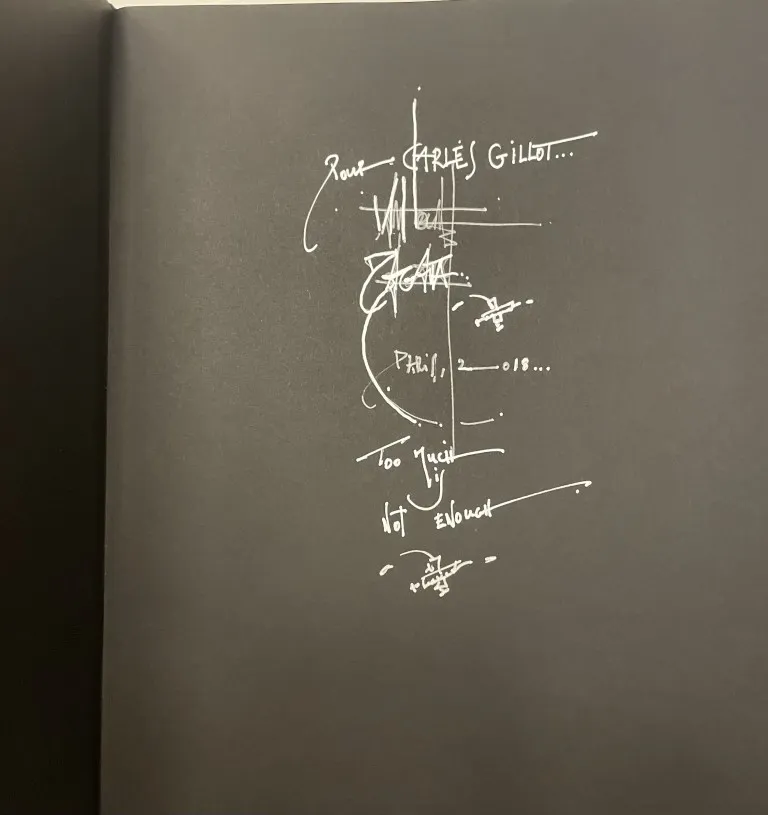 Pour CARLES GiLLOT...
PARiS, 2018...
Too MUCH
iS
NOT ENOUGH